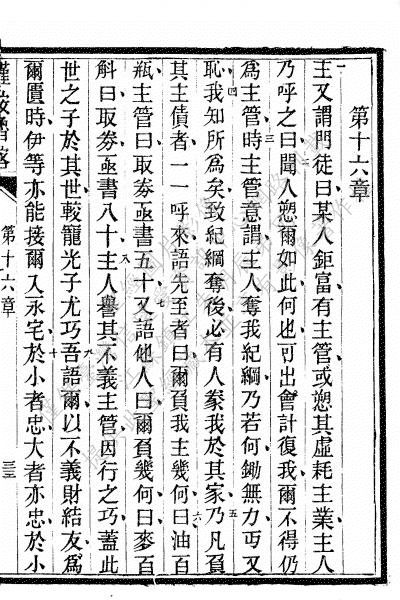 第十六章
主又謂門徒曰某人鉅富有主管或愬其虛耗主業主人
乃呼之曰聞人愬爾如此何也可出會計復我爾不得仍
為主管時主管意謂主人奪我紀綱乃若何鋤無力丐又
恥我知所為矣致紀綱奪後必有人豢我於其家乃凡負
其主債者一一呼來語先至者曰爾負我主幾何曰油百
瓶主管曰取券亟書五十又語他人曰爾負幾何曰麥百
斛曰取券亟書八十主人譽其不義主管因行之巧蓋此
世之子於其世較籠光子尤巧吾語爾以不義財結友為
爾匱時伊等亦能接爾入永宅於小者忠大者亦忠於小
第十六章